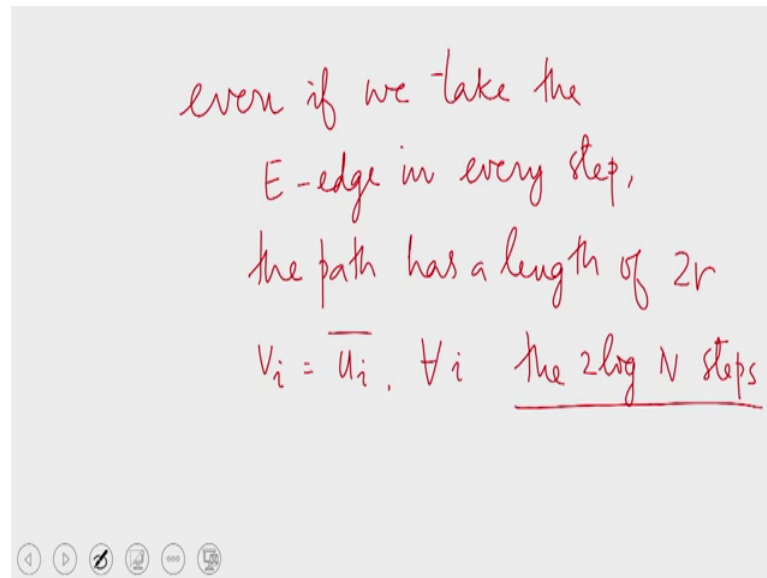 even if we take the
E-edge in every step,
the path has a length of 2r
v_i = \overline{u_i}, ∀i the 2 log N steps